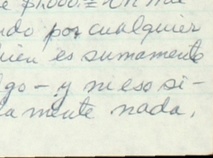 $1.000.=
ndo por cualquier
uien es sumamente
go - y ni eso si-
amente nada.